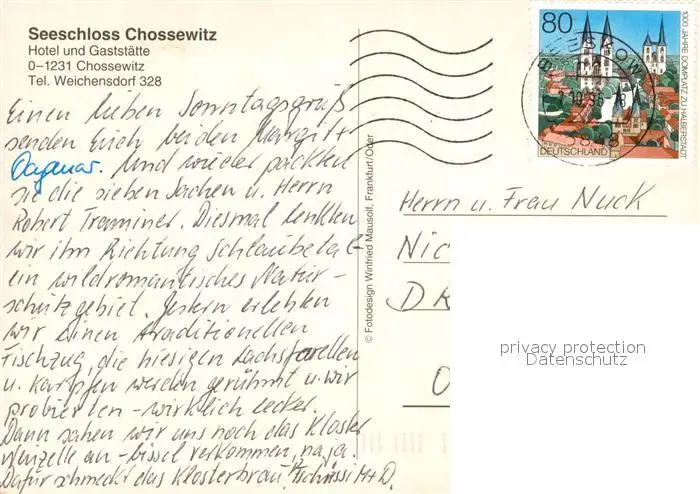 Seeschloss Chossewitz
Hotel und Gaststätte
0–1231 Chossewitz
Tel. Weichensdorf 328
Einen lieben Sonntagsgruß
senden Euch beiden Margitt
Dagmar. Und wieder packten
sie die sieben Sachen u. Herrn
Robert Traminer. Diesmal lenkten
wir ihn Richtung Schlaubetal-
ein wildromantisches Natur-
schutzgebiet. Gestern erlebten
wir einen traditionellen
Fischzug, die hiesigen Lachsforellen
u. Karpfen werden gerühmt u. wir
probierten - wirklich lecker.
Dann sahen wir uns noch das Kloster
Neuzelle an - bissel verkommen, na ja.
Dafür schmeckt das Klosterbräu. Tschüssi M+D.
© Fotodesign Winfried Mausolf, Frankfurt/Oder
80
1000 JAHRE DOMPLATZ ZU HALBERSTADT
DEUTSCHLAND
Herrn u. Frau Nuck
NIC
DR
O
privacy protection
Datenschutz